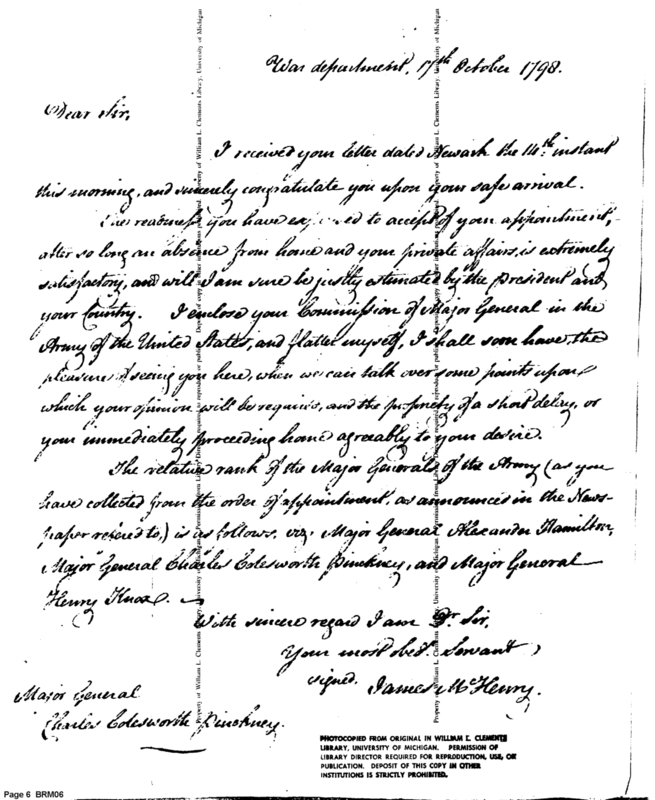 War department, 17th October 1798.
Dear Sir,
I received your letter dated Newark the 14th: instant
this morning, and sincerely congratulate you upon your safe arrival.
The readiness you have expressed to accept of your appointment,
after so long an absence from home and your private affairs, is extremely
satisfactory, and will I am sure be justly estimated by the President and
your Country. I enclose your Commission of Major General in the
Army of the United States, and flatter myself, I shall soon have the
pleasure of seeing you here, when we can talk over some points upon
which your opinion will be required, and the propriety of a short delay, or
your immediately proceeding home agreeably to your desire.
The relative rank of the Major Generals of the Army (as you
have collected from the order of appointment, as announced in the News-
paper refered to,) is as follows, viz. Major General Alexander Hamilton,
Major General Charles Cotesworth Pinckney, and Major General
Henry Knox.
With sincere regard I am Dr. Sir,
Your most obed. Servant
signed. James McHenry.
Major General
Charles Cotesworth Pinckney.
PHOTOCOPIED FROM ORIGINAL IN WILLIAM L. CLEMENTS
LIBRARY, UNIVERSITY OF MICHIGAN. PERMISSION OF
LIBRARY DIRECTOR REQUIRED FOR REPRODUCTION, USE, OR
PUBLICATION. DEPOSIT OF THIS COPY IN OTHER
INSTITUTIONS IS STRICTLY PROHIBITED.
Page 6 BRM06